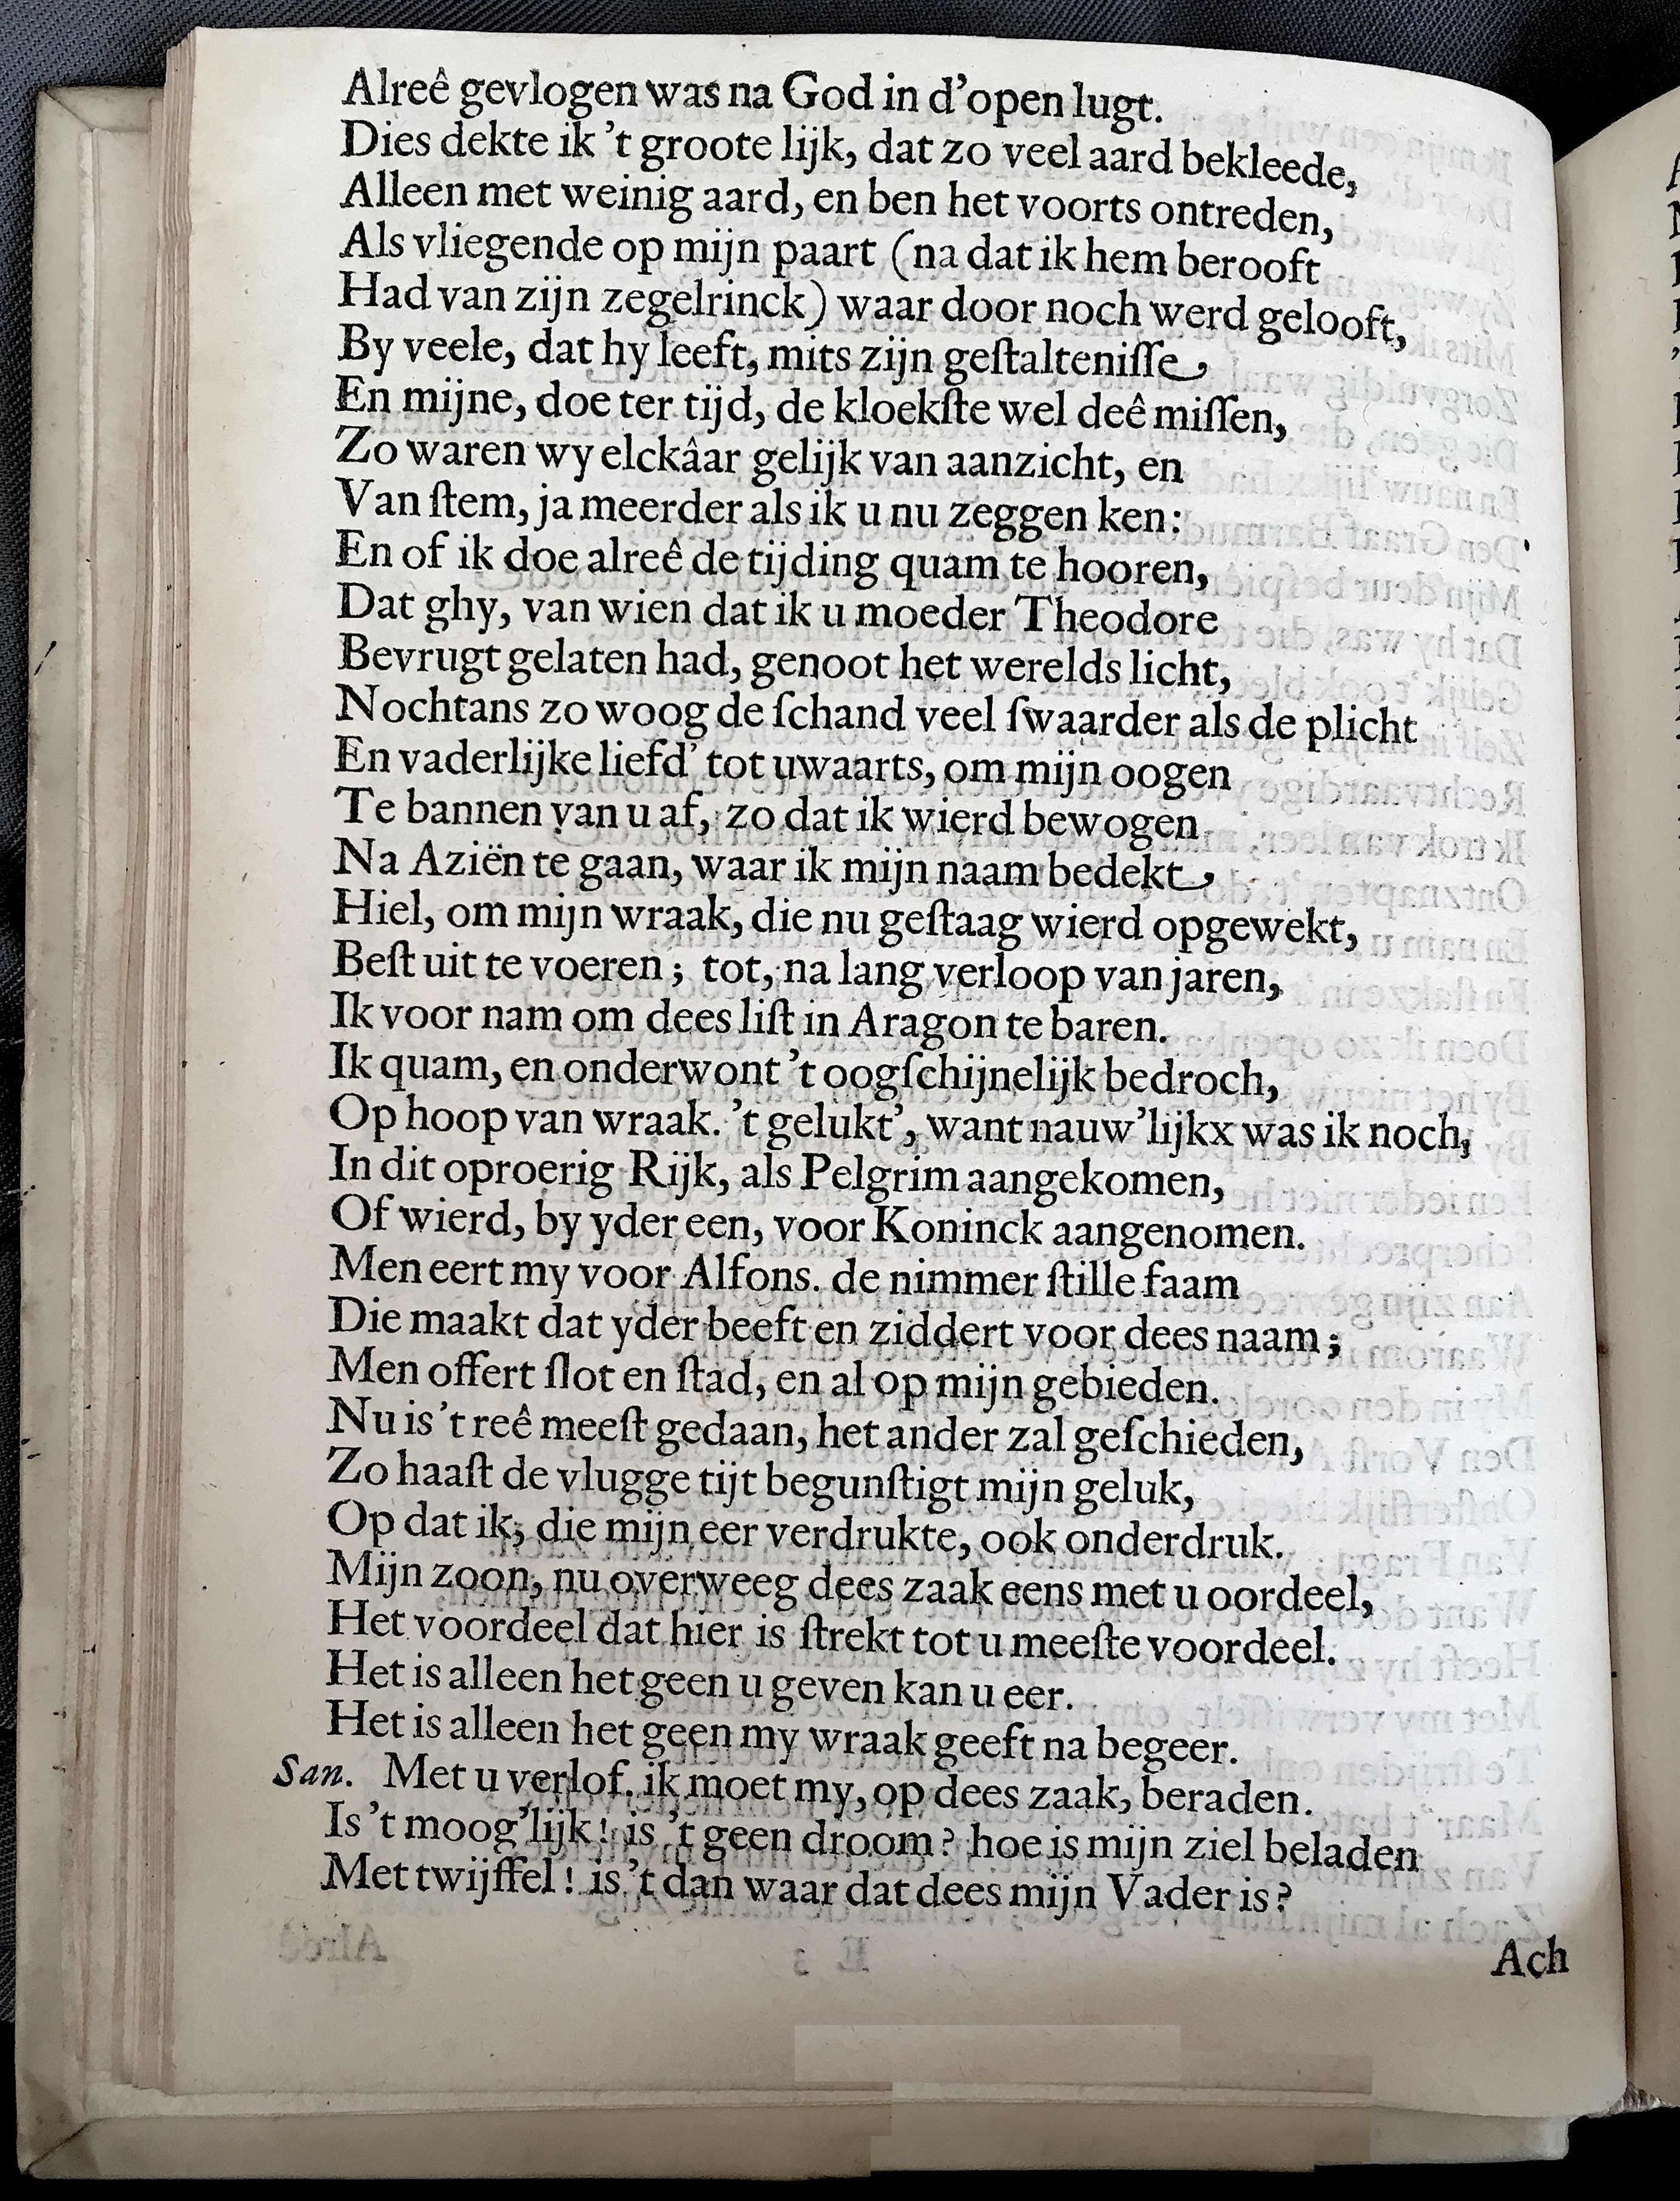 Alreê gevlogen was na God in d'open lugt.
Dies dekte ik 't groote lijk, dat zo veel aard bekleede,
Alleen met weinig aard, en ben het voorts ontreden,
Als vliegende op mijn paart (na dat ik hem berooft
Had van zijn zegelrinck) waar door noch werd gelooft,
By veele, dat hy leeft, mits zijn geſtalteniſſe,
En mijne, doe ter tijd, de kloekſte wel deê miſſen,
Zo waren wy elckâar gelijk van aanzicht, en
Van ſtem, ja meerder als ik u nu zeggen ken:
En of ik doe alreê de tijding quam te hooren,
Dat ghy, van wien dat ik u moeder Theodore
Bevrugt gelaten had, genoot het werelds licht,
Nochtans zo woog de ſchand veel ſwaarder als de plicht
En vaderlijke liefd' tot uwaarts, om mijn oogen
Te bannen van u af, zo dat ik wierd bewogen
Na Aziën te gaan, waar ik mijn naam bedekt,
Hiel, om mijn wraak, die nu geſtaag wierd opgewekt,
Beſt uit te voeren; tot, na lang verloop van jaren,
Ik voor nam om dees liſt in Aragon te baren.
Ik quam, en onderwont 't oogſchijnelijk bedroch,
Op hoop van wraak. 't gelukt', want nauw'lijkx was ik noch,
In dit oproerig Rijk, als Pelgrim aangekomen,
Of wierd, by yder een, voor Koninck aangenomen.
Men eert my voor Alfons. de nimmer ſtille faam
Die maakt dat yder beeft en ziddert voor dees naam;
Men offert ſlot en ſtad, en al op mijn gebieden.
Nu is 't reê meeſt gedaan, het ander zal geſchieden,
Zo haaſt de vlugge tijt begunſtigt mijn geluk,
Op dat ik, die mijn eer verdrukte, ook onderdruk.
Mijn zoon, nu overweeg dees zaak eens met u oordeel,
Het voordeel dat hier is ſtrekt tot u meeſte voordeel.
Het is alleen het geen u geven kan u eer.
Het is alleen het geen my wraak geeft na begeer.
San. Met u verlof. ik moet my, op dees zaak, beraden.
Is 't moog'lijk! is 't geen droom? hoe is mijn ziel beladen
Met twijffel! is 't dan waar dat dees mijn Vader is?
Ach